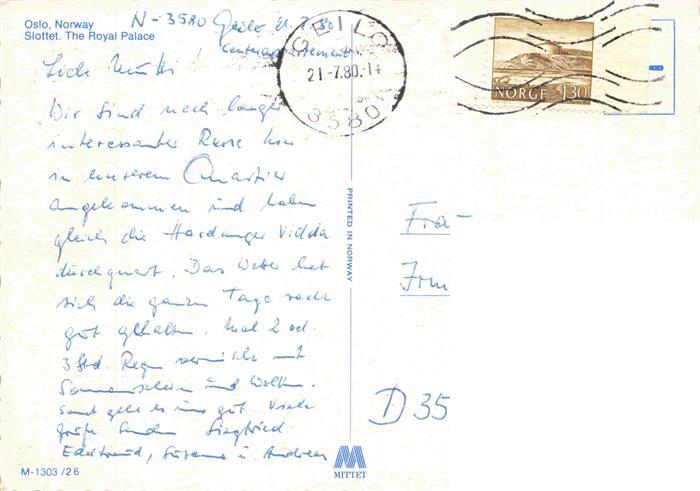 Oslo, Norway
Slottet. The Royal Palace
N-3580 Geilo 21.7.80
Centerappartement
GEILO
21-7.80.-14
3580
NORGE 1,30
Liebe Mutti!
Wir sind nach langer
interessanter Reise hier
in unserem Quartier
angekommen und haben
gleich die Hardanger Vidda
durchquert. Das Wetter hat
sich die ganzen Tage recht
gut gehalten. Mal 2 od.
3 Std. Regen vermischt mit
Sonnenschein und Wolken.
Sonst geht es uns gut. Viele
Grüße senden Siegfried
Edeltraud, Susanne u. Andreas
PRINTED IN NORWAY
Frau
Irm
D 35
M-1303/26
MITTET